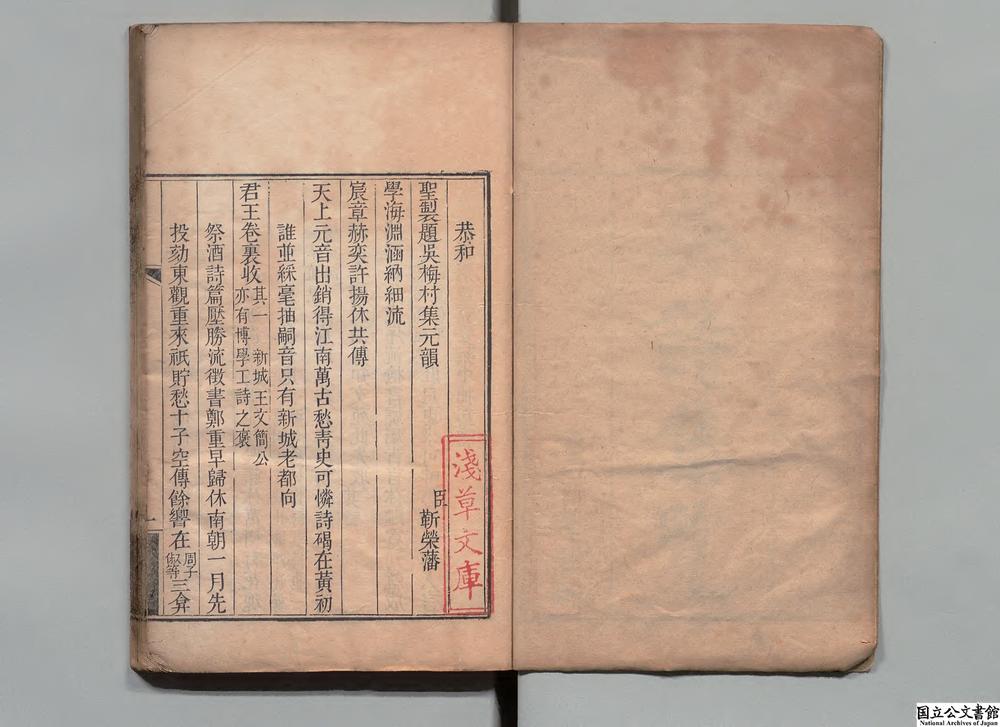 恭和
聖製題吳梅村集元韻
臣靳榮藩
學海淵涵納細流
宸章赫奕許揚休共傳
天上元音出銷得江南萬古愁靑史可憐詩碣在黃初
誰並綵毫抽嗣音只有新城老都向
君王卷裏收其一 新城王文簡公
亦有博學工詩之褒
祭酒詩篇壓勝流徵書鄭重早歸休南朝一月先
投劾東觀重來祇貯愁十子空傳餘響在周子
俶等三弇
一
淺草文庫
国立公文書館
National Archives of Japan